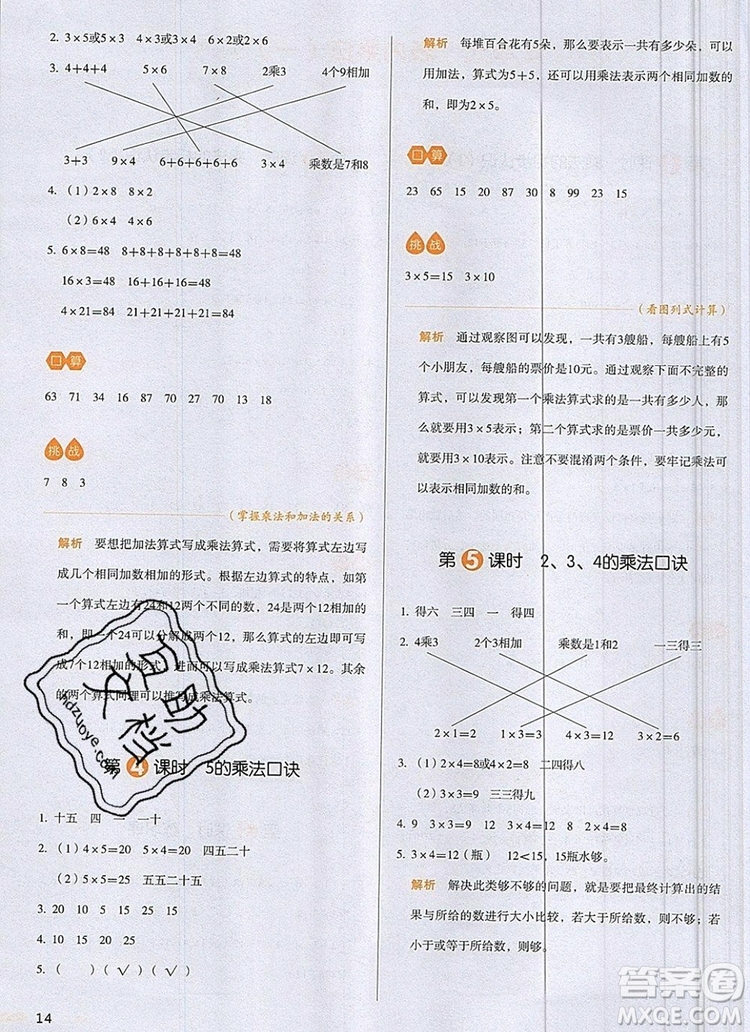 2. 3×5或5×3　4×4　2×6
3. 4+4+4　5×6　7×8　2乘3　4个9相加
3+3　9×4　6+6+6+6+6　3×4　乘数是7和8
4.（1）2×8　8×2
（2）6×4　4×6
5. 6×8=48　8+8+8+8+8+8=48
16×3=48　16+16+16=48
4×21=84　21+21+21+21=84
口算
63　71　34　16　87　70　27　70　13　18
挑战
7　8　3
（掌握乘法和加法的关系）
解析　要想把加法算式写成乘法算式，需要将算式左边写
成几个相同加数相加的形式。根据左边算式的特点，
第一个算式左边有24和12两个不同的数，24是两个12的
和，即一个24可以分解成两个12，那么算式左边即可写
成7个12相加的形式，进而可以写成乘法算式7×12。其余
的两个算式同理可以推写成乘法算式。
第4课时　5的乘法口诀
1. 十五　四　一　一十
2.（1）4×5=20　5×4=20　四五二十
（2）5×5=25　五五二十五
3. 20　10　15　25
4. 10　15　20　25
5.（　）（√）（√）
14
解析　每堆百合花有5朵，那么要表示一共有多少朵，可以
用加法，算式为5+5，还可以用乘法表示两个相同加数的
和，即为2×5。
口算
23　65　15　20　87　30　8　99　23　15
挑战
3×5=15　3×10
（看图列式计算）
解析　通过观察图可以发现，一共有3艘船，每艘船上有5
个小朋友，每艘船的票价是10元。观察下面不完整的
算式，可以发现第一个乘法算式求的是一共有多少人，那
么就要用3×5表示；第二个算式求的是票价一共有多少
元，要用3×10表示。注意不要混淆两个条件，要牢记乘法可
以表示相同加数的和。
第5课时　2、3、4的乘法口诀
1. 得六　三四　一　得四
2. 4乘3　2个3相加　乘数是1和2　一三得三
4×3=12　2×1=2　1×3=3　2×3=6
3.（1）2×4=8　二四得八
（2）3×3=9　三三得九
4. 9　3　12　8　12　16　9　6
5. 3×4=12（瓶）　12＜15，15瓶水够。
解析　解决此类够不够的问题，就是把最终计算出的结
果与所给的数进行大小比较，若大于所给数，不够；若
小于或等于所给数，够。
豆文
即档
kidzuoye.com
答案圈
MXQE.COM